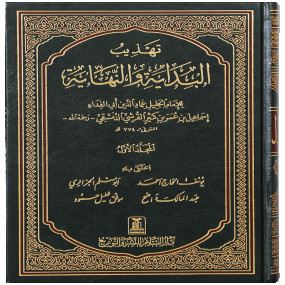 تهذيب
البداية والنهاية
للإمام الجليل عماد الدين أبي الفداء
إسماعيل بن عمر بن كثير القرشي الدمشقي - رحمه الله -
المتوفى ٧٧٤ هـ
المجلد الأول
اعتنى به
يوسف الحاج أحمد
دار السلام للنشر والتوزيع